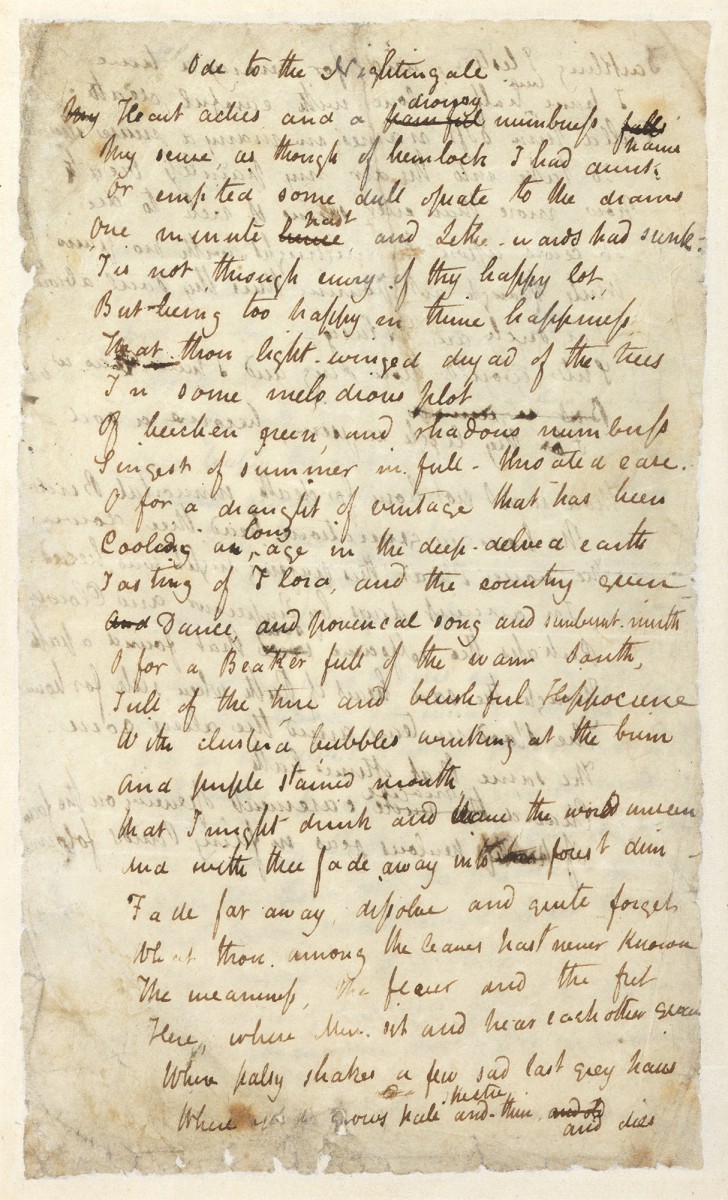 Ode to the Nightingale
My Heart aches and a painful drowsy numbness falls
My sense, as though of hemlock I had drunk pains
Or emptied some dull opiate to the drains
One minute hence past, and Lethe-wards had sunk.
Tis not through envy of thy happy lot,
But being too happy in thine happiness
That thou light-winged dryad of the trees
In some melodious plot
Of beechen green, and shadows numberless
Singest of summer in full-throated ease.
O for a draught of vintage that has been
Cooling an long age in the deep-delved earth
Tasting of Flora, and the country green
And Dance, and provencal song and sunburnt mirth
O for a Beaker full of the warm South,
Full of the true and blushful Hippocrene
With cluster'd bubbles winking at the brim
And purple stained mouth,
That I might drink and leave the world unseen
And with thee fade away into the forest dim
Fade far away, dissolve and quite forget
What thou among the leaves hast never known
The weariness, the fever and the fret
Here, where Men sit and hear each other groan
Where palsy shakes a few sad last grey hairs
Where grows pale and spectre thin and old and dies